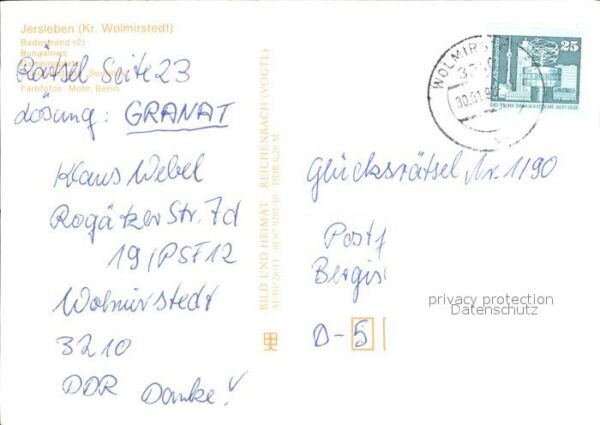 Jersleben (Kr. Wolmirstedt)
Badestrand (2)
Bungalows
Farbfotos: Mohr, Berlin
Rätsel Seite 23
Lösung: GRANAT
Klaus Webel
Rogätzer Str. 7d
19, PSF 12
Wolmirstedt
3210
DDR Danke!
BILD UND HEIMAT REICHENBACH (VOGTL)
WOLMIRS
30.01.9
25
DEUTSCHE DEMOKRATISCHE REPUBLIK
Glücksrätsel Nr. 1190
Postf
Bergis
D-5
privacy protection
Datenschutz